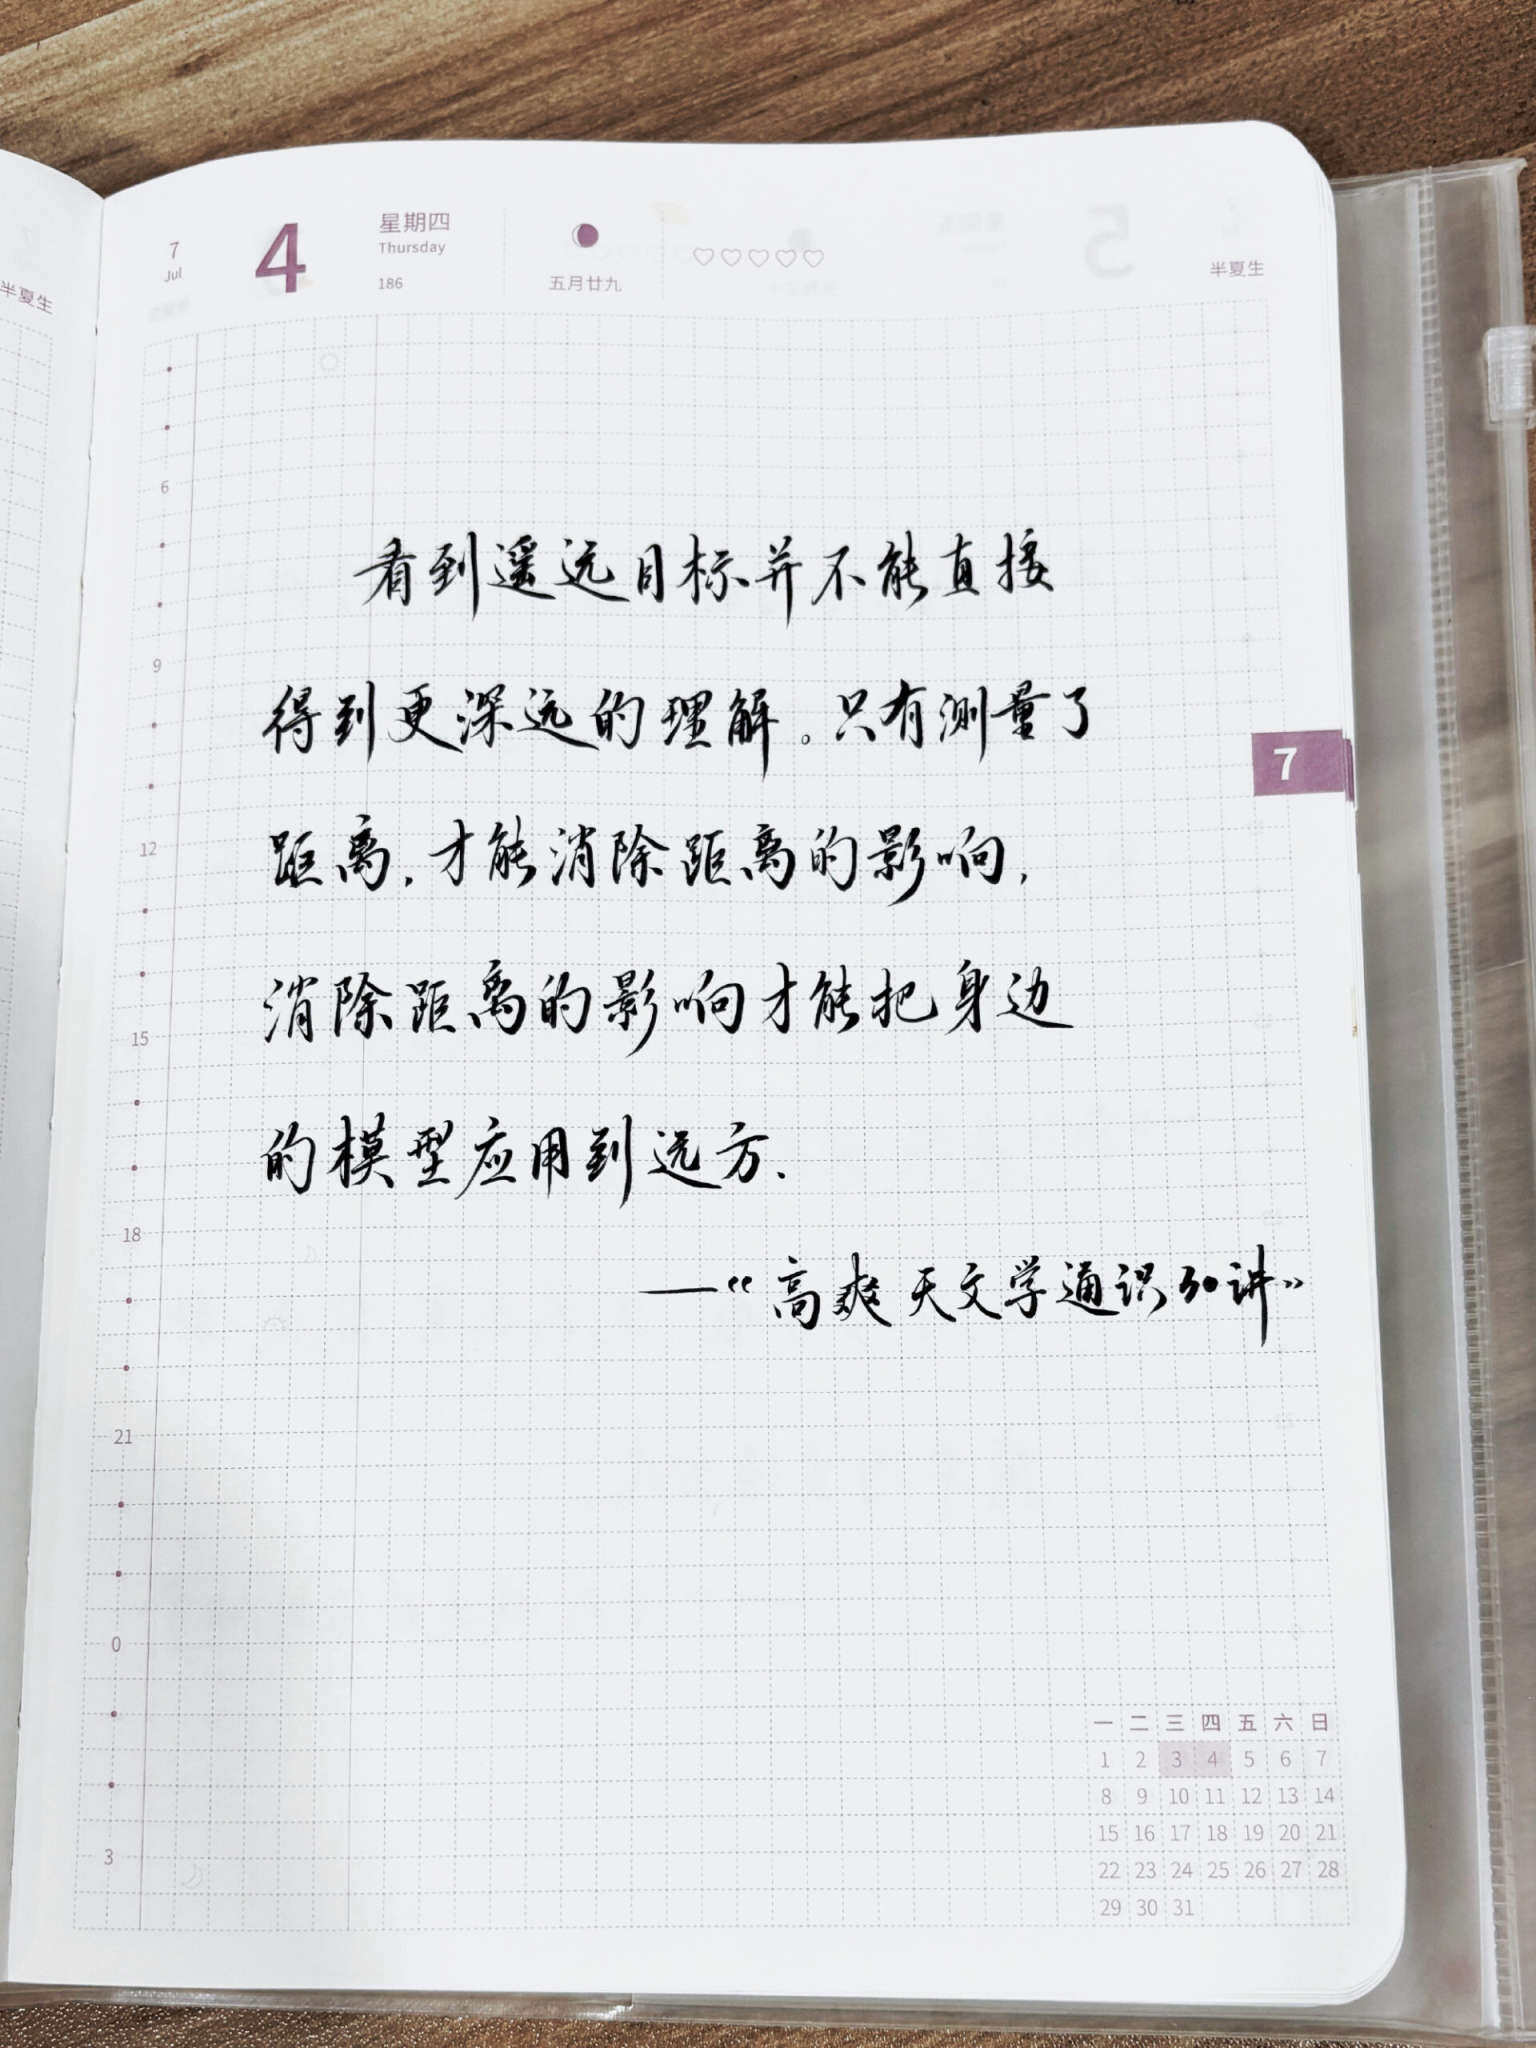 半夏生
7
Jul
4
星期四
Thursday
186
五月廿九
半夏生
看到遥远目标并不能直接
得到更深远的理解。只有测量了
距离,才能消除距离的影响,
消除距离的影响才能把身边
的模型应用到远方.
—“高爽天文学通识30讲”
7
6
9
12
15
18
21
0
3
一 二 三 四 五 六 日
1 2 3 4 5 6 7
8 9 10 11 12 13 14
15 16 17 18 19 20 21
22 23 24 25 26 27 28
29 30 31